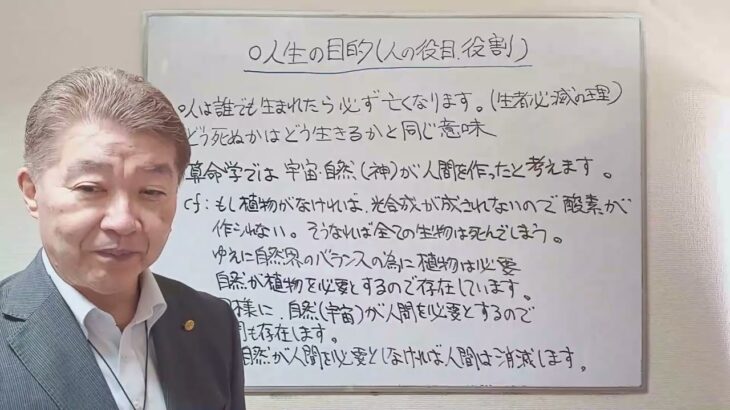 ○人生の目的(人の役目、役割)
○人は誰でも生まれたら必ず亡くなります。(生者必滅の理)
どう死ぬかはどう生きるかと同じ意味
算命学では宇宙・自然(神)が人間を作ったと考えます。
cf:もし植物がなければ、光合成が成されないので酸素が
作られない。そうなれば全ての生物は死んでしまう。
ゆえに自然界のバランスの為に植物は必要
自然が植物を必要とするので存在しています。
様に、自然(宇宙)が人間を必要とするので
も存在します。
自然が人間を必要としなければ、人間は消滅します。